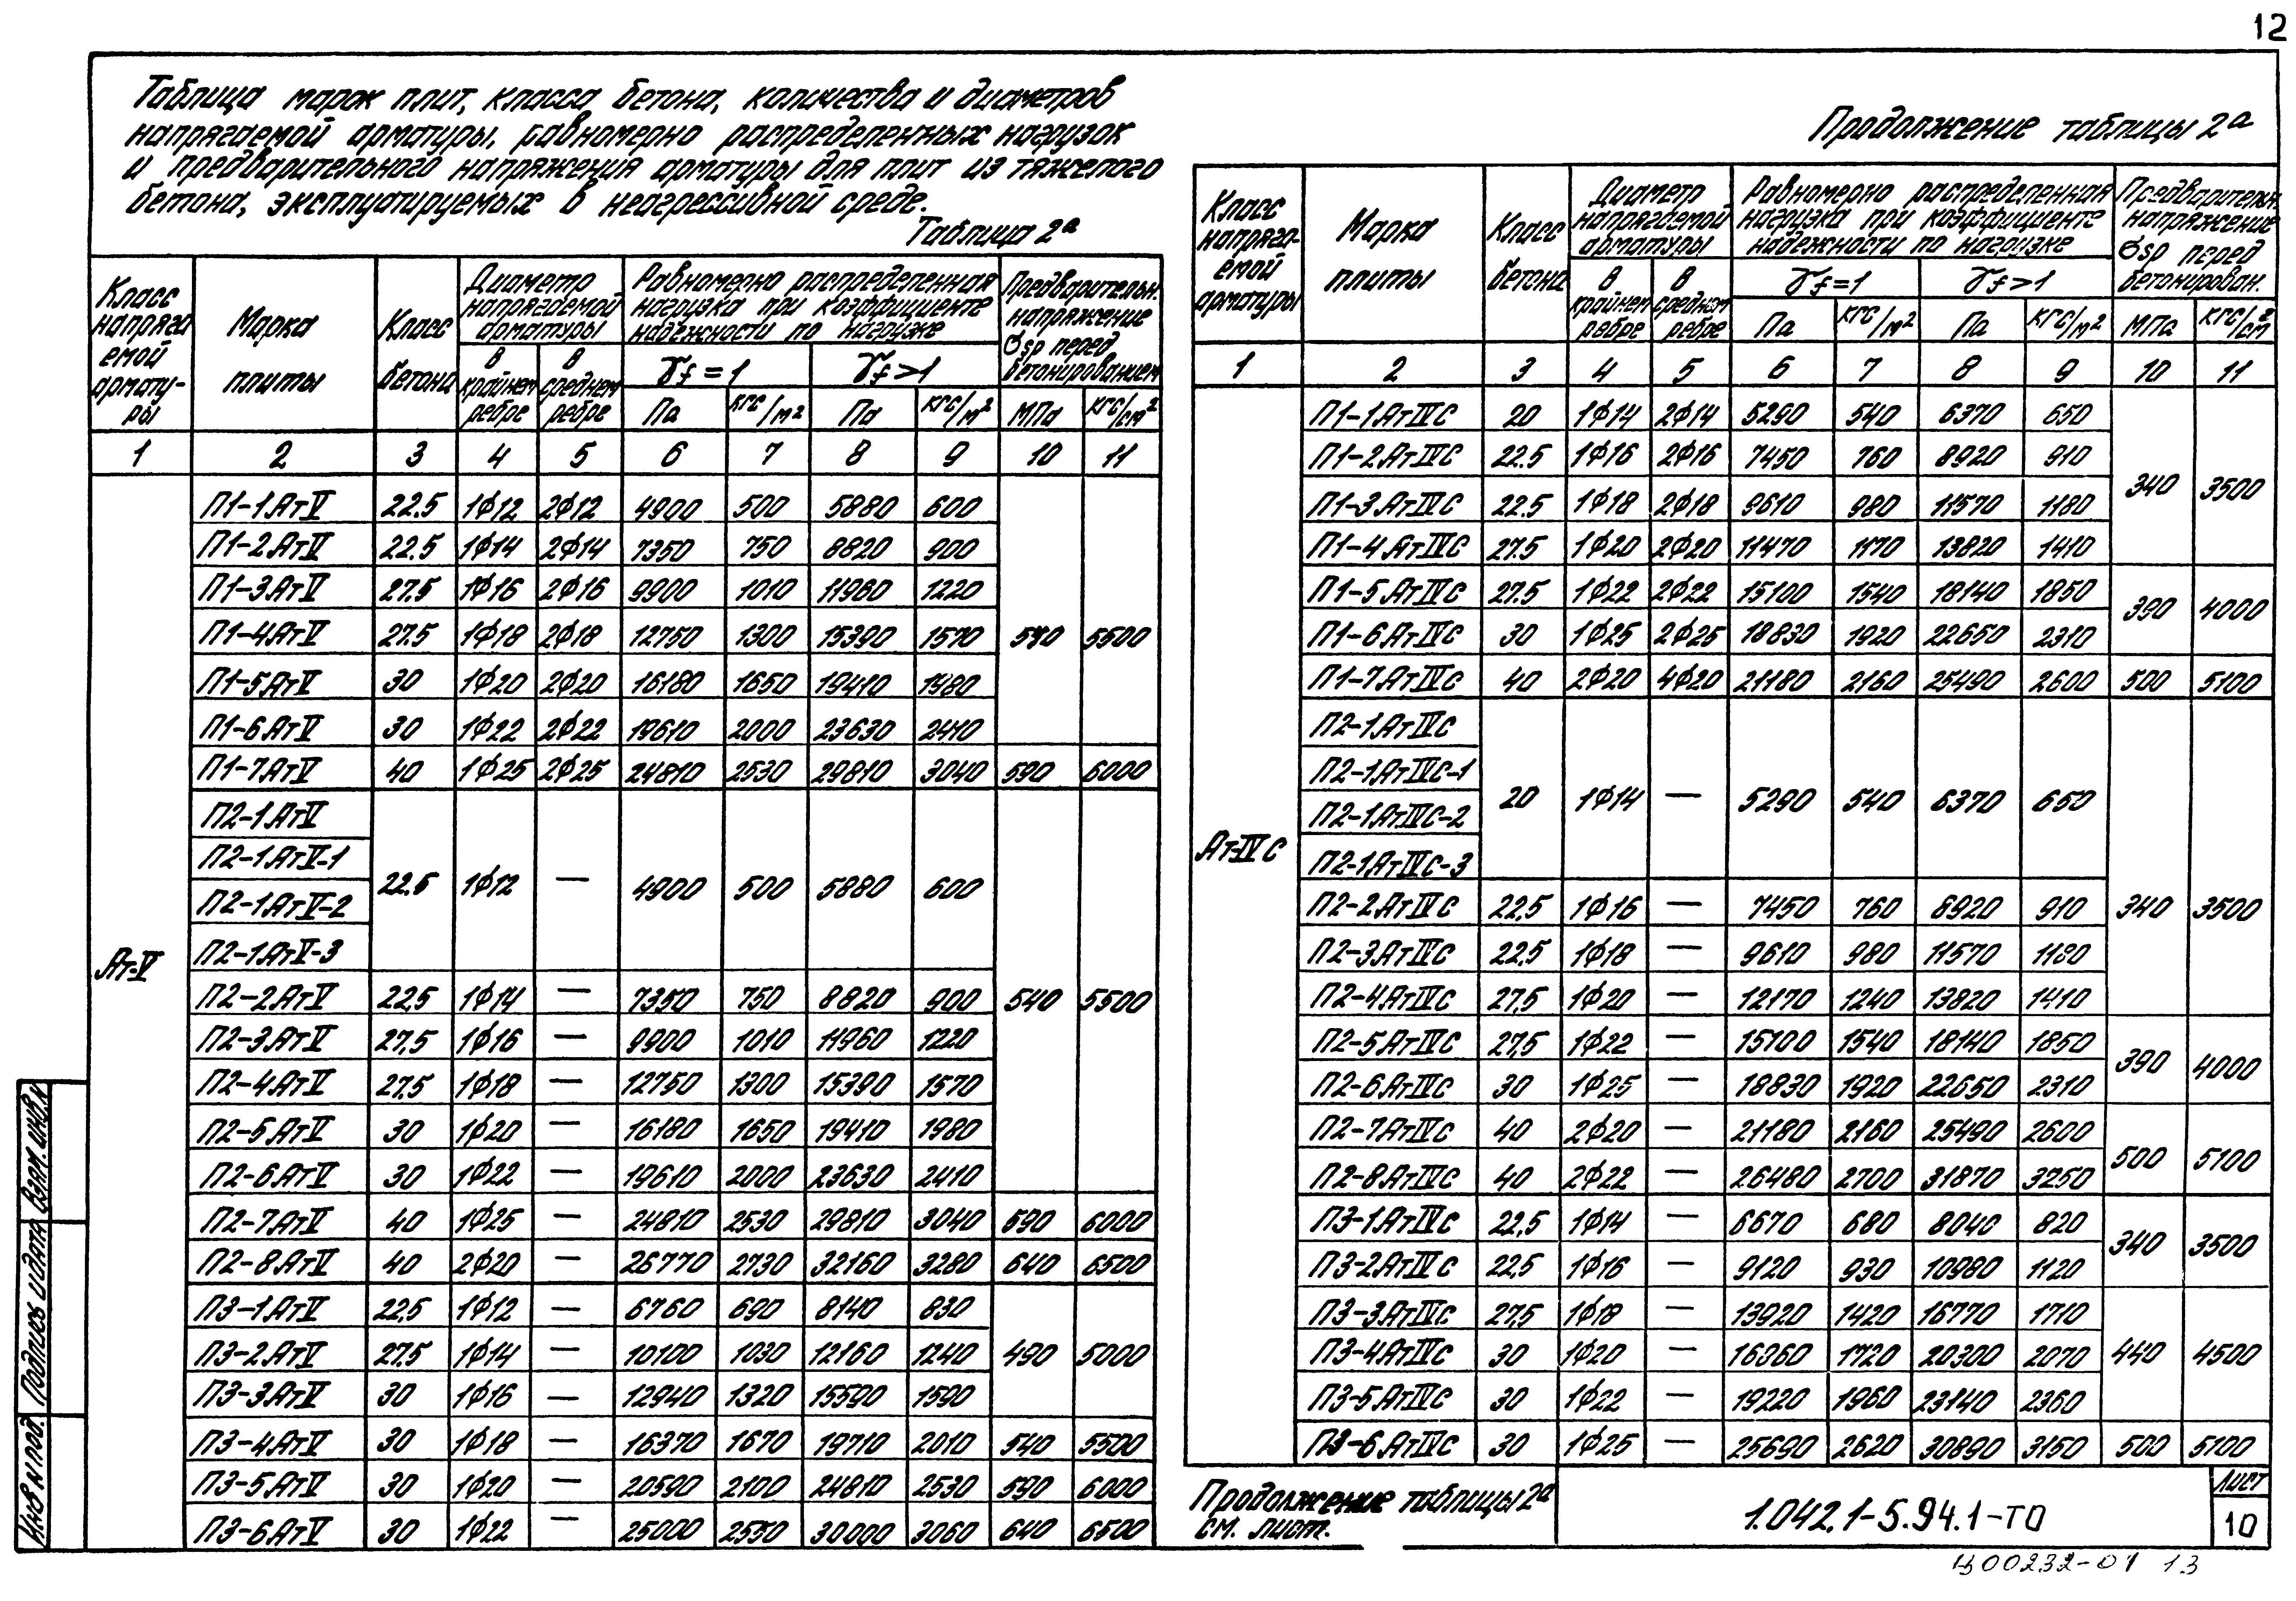 12
Таблица марок плит, класса бетона, количества и диаметров
напрягаемой арматуры, равномерно распределенных нагрузок
и предварительного напряжения арматуры для плит из тяжелого
бетона, эксплуатируемых в неагрессивной среде.
Таблица 2а
Класс напрягаемой арматуры | Марка плиты | Класс бетона | Диаметр напрягаемой арматуры | Равномерно распределенная нагрузка при коэффициенте надежности по нагрузке | Предварительн. напряжение σsp перед бетонированием
в крайнем ребре | в среднем ребре | γf=1 | γf>1
Па | кгс/м² | Па | кгс/м² | МПа | кгс/см²
1 2 3 4 5 6 7 8 9 10 11
Ат-V
П1-1АтV 22.5 1ф12 2ф12 4900 500 5880 600
П1-2АтV 22.5 1ф14 2ф14 7350 750 8820 900
П1-3АтV 27.5 1ф16 2ф16 9900 1010 11960 1220
П1-4АтV 27.5 1ф18 2ф18 12750 1300 15390 1570 540 5500
П1-5АтV 30 1ф20 2ф20 16180 1650 19410 1980
П1-6АтV 30 1ф22 2ф22 19610 2000 23630 2410
П1-7АтV 40 1ф25 2ф25 24810 2530 29810 3040 590 6000
П2-1АтV
П2-1АтV-1
П2-1АтV-2 22.5 1ф12 — 4900 500 5880 600
П2-1АтV-3
П2-2АтV 22,5 1ф14 — 7350 750 8820 900 540 5500
П2-3АтV 27,5 1ф16 — 9900 1010 11960 1220
П2-4АтV 27,5 1ф18 — 12750 1300 15390 1570
П2-5АтV 30 1ф20 — 16180 1650 19410 1980
П2-6АтV 30 1ф22 — 19610 2000 23630 2410
П2-7АтV 40 1ф25 — 24810 2530 29810 3040 590 6000
П2-8АтV 40 2ф20 — 26770 2730 32160 3280 640 6500
П3-1АтV 22,5 1ф12 — 6760 690 8140 830
П3-2АтV 27.5 1ф14 — 10100 1030 12160 1240 490 5000
П3-3АтV 30 1ф16 — 12940 1320 15590 1590
П3-4АтV 30 1ф18 — 16370 1670 19710 2010 540 5500
П3-5АтV 30 1ф20 — 20590 2100 24810 2530 590 6000
П3-6АтV 30 1ф22 — 25000 2550 30000 3060 640 6500
Продолжение таблицы 2а
Класс напрягаемой арматуры | Марка плиты | Класс бетона | Диаметр напрягаемой арматуры | Равномерно распределенная нагрузка при коэффициенте надежности по нагрузке | Предварительн. напряжение σsp перед бетонирован.
в крайнем ребре | в среднем ребре | γf=1 | γf>1
Па | кгс/м² | Па | кгс/м² | МПа | кгс/см²
1 2 3 4 5 6 7 8 9 10 11
Ат-IVС
П1-1АтIVС 20 1ф14 2ф14 5290 540 6370 650
П1-2АтIVС 22.5 1ф16 2ф16 7450 760 8920 910
П1-3АтIVС 22.5 1ф18 2ф18 9610 980 11570 1180 340 3500
П1-4АтIVС 27.5 1ф20 2ф20 11470 1170 13820 1410
П1-5АтIVС 27.5 1ф22 2ф22 15100 1540 18140 1850 390 4000
П1-6АтIVС 30 1ф25 2ф25 18830 1920 22650 2310
П1-7АтIVС 40 2ф20 4ф20 21180 2160 25490 2600 500 5100
П2-1АтIVС
П2-1АтIVС-1
П2-1АтIVС-2 20 1ф14 — 5290 540 6370 650
П2-1АтIVС-3
П2-2АтIVС 22,5 1ф16 — 7450 760 8920 910 340 3500
П2-3АтIVС 22.5 1ф18 — 9610 980 11570 1180
П2-4АтIVС 27,5 1ф20 — 12170 1240 13820 1410
П2-5АтIVС 27,5 1ф22 — 15100 1540 18140 1850 390 4000
П2-6АтIVС 30 1ф25 — 18830 1920 22650 2310
П2-7АтIVС 40 2ф20 — 21180 2160 25490 2600 500 5100
П2-8АтIVС 40 2ф22 — 26480 2700 31870 3250
П3-1АтIVС 22,5 1ф14 — 6670 680 8040 820 340 3500
П3-2АтIVС 22,5 1ф16 — 9120 930 10980 1120
П3-3АтIVС 27,5 1ф18 — 13920 1420 16770 1710
П3-4АтIVС 30 1ф20 — 16360 1720 20300 2070 440 4500
П3-5АтIVС 30 1ф22 — 19220 1960 23140 2360
П3-6АтIVС 30 1ф25 — 25690 2620 30890 3150 500 5100
Продолжение таблицы 2а
см. лист.
1.042.1-5.94.1-ТО
Лист
10
Взам. инв. N
Подпись и дата
Инв N под.
Ц00232-01 13